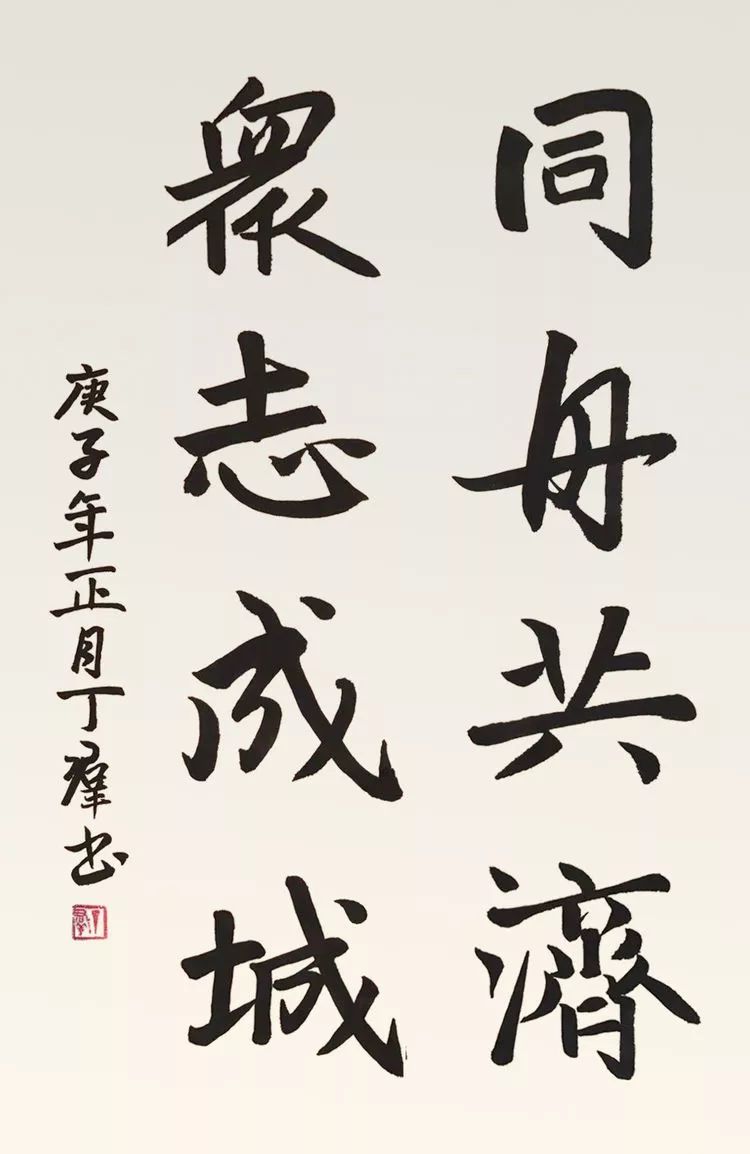 同舟共濟
眾志成城
庚子年正月丁群书